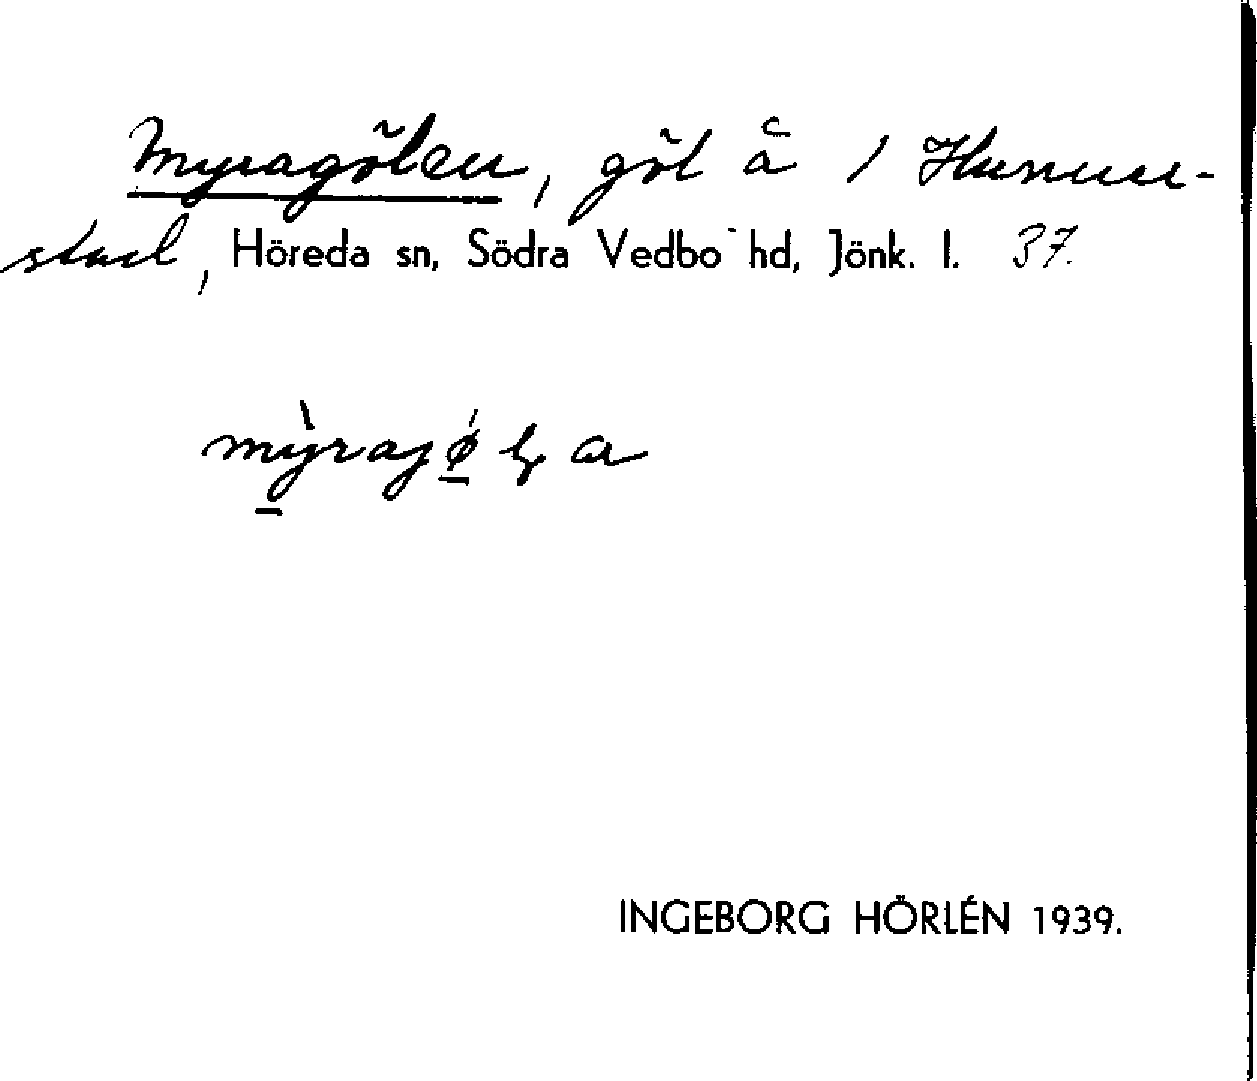 Myragölen, göl å 1 Hunner-
stad, Höreda sn, Södra Vedbo hd, Jönk. l. 37.
mỳraj ǿ lɲ a
INGEBORG HÖRLÉN 1939.